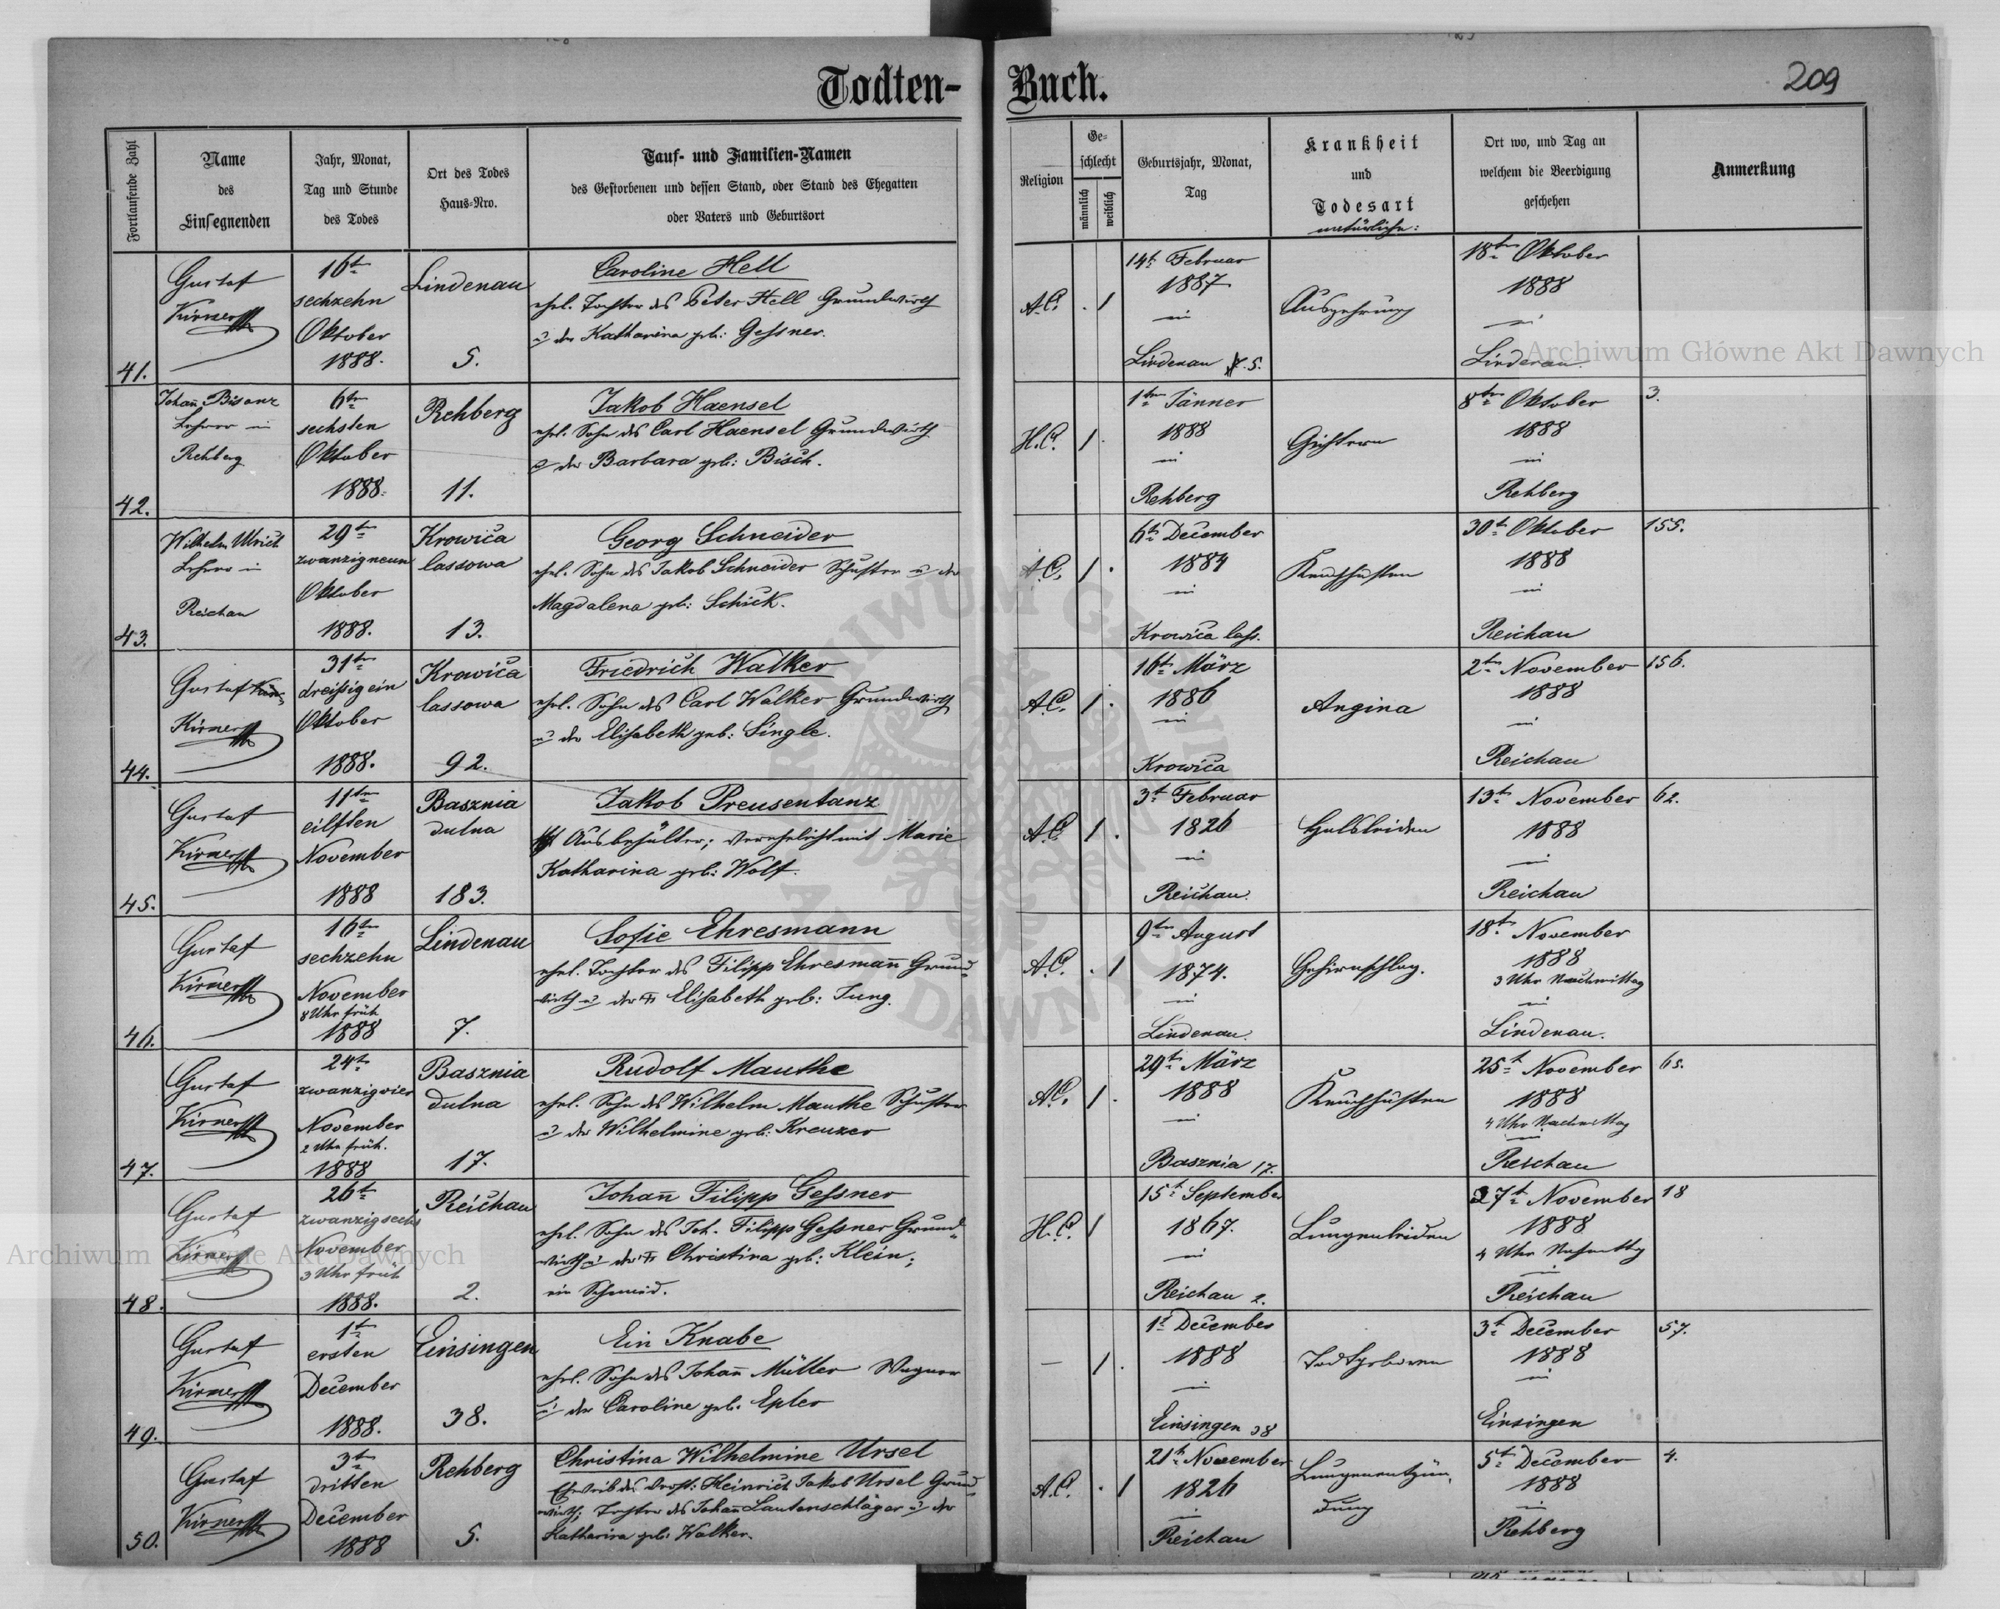 Todten-Buch.
209
Fortlaufende Zahl
Name
des
Einsegnenden
Jahr, Monat,
Tag und Stunde
des Todes
Ort des Todes
Haus-Nro.
Tauf- und Familien-Namen
des Gestorbenen und dessen Stand, oder Stand des Ehegatten
oder Vaters und Geburtsort
Religion
Ge-
schlecht
männlich
weiblich
Geburtsjahr, Monat,
Tag
Krankheit
und
Todesart
natürliche:
Ort wo, und Tag an
welchem die Beerdigung
geschehen
Anmerkung
41.
Gustaf
Kirner
16tn
sechzehn
Oktober
1888.
Lindenau
5.
Caroline Hell
ehel. Tochter des Peter Hell Grundwirth
u der Katharina geb: Gessner.
A.C.
. 1
14tn Februar
1887
in
Lindenau N. 5.
Auszehrung
18tn Oktober
1888
in
Lindenau.
42.
Johañ Bisanz
Lehrer in
Rehberg
6tn
sechsten
Oktober
1888.
Rehberg
11.
Jakob Haensel
ehel. Sohn des Carl Haensel Grundwirth
u der Barbara geb: Bisch.
H.C.
1 .
1tn Jänner
1888
in
Rehberg
Gichtern
8tn Oktober
1888
in
Rehberg
3.
43.
Wilhelm Ulrich
Lehrer in
Reichau
29tn
zwanzigneun
Oktober
1888.
Krowica
lassowa
13.
Georg Schneider
ehel. Sohn des Jakob Schneider Schuster u der
Magdalena geb: Schick.
A.C.
1 .
6tn December
1884
in
Krowica lass.
Keuchhusten
30tn Oktober
1888
in
Reichau
155.
44.
Gustaf
Kirner
31tn
dreißigein
Oktober
1888.
Krowica
lassowa
92.
Friedrich Walker
ehel. Sohn des Carl Walker Grundwirth
u der Elisabeth geb: Single.
A.C.
1 .
16tn März
1886
in
Krowica
Angina
2tn November
1888
in
Reichau
156.
45.
Gustaf
Kirner
11tn
eilften
November
1888
Basznia
dulna
183.
Jakob Preusentanz
Ausbehälter; verehelicht mit Marie
Katharina geb: Wolf.
A.C.
1 .
3tn Februar
1826
in
Reichau.
Halsleiden
13tn November
1888
in
Reichau
62.
46.
Gustaf
Kirner
16tn
sechzehn
November
8 Uhr früh
1888
Lindenau
7.
Sofie Ehresmann
ehel. Tochter des Filipp Ehresmañ Grund=
wirth u der Elisabeth geb: Jung.
A.C.
. 1
9tn August
1874.
in
Lindenau.
Gehirnschlag.
18tn November
1888
3 Uhr Nachmittag
in
Lindenau.
47.
Gustaf
Kirner
24tn
zwanzigvier
November
2 Uhr früh.
1888
Basznia
dulna
17.
Rudolf Mauthe
ehel. Sohn des Wilhelm Mauthe Schuster
u der Wilhelmine geb: Kreuzer
A.C.
1 .
29tn März
1888
in
Basznia 17.
Keuchhusten
25tn November
1888
4 Uhr Nachmittag
in
Reichau
65.
48.
Gustaf
Kirner
26tn
zwanzigsechs
November
3 Uhr früh
1888.
Reichau
2.
Johañ Filipp Gessner
ehel. Sohn des Joh. Filipp Gessner Grund=
wirth u der Christina geb: Klein;
ein Schmid.
H.C.
1
15tn September
1867.
in
Reichau 2.
Lungenleiden
27tn November
1888
4 Uhr
in
Reichau
18
49.
Gustaf
Kirner
1tn
ersten
December
1888.
Einsingen
38.
Ein Knabe
ehel. Sohn des Johañ Müller Wagner
u der Caroline geb. Epler
—
1 .
1t December
1888
in
Einsingen 38
Todtgeboren
3tn December
1888
in
Einsingen
57.
50.
Gustaf
Kirner
3tn
dritten
December
1888
Rehberg
5.
Christina Wilhelmine Ursel
Eheweib des Heinrich Jakob Ursel Grund=
wirth; Tochter des Johañ Lautenschläger u der
Katharina geb: Walker.
A.C.
. 1
21tn November
1826
in
Reichau
Lungenentzün-
dung
5tn December
1888
in
Rehberg
4.
Archiwum Główne Akt Dawnych
Archiwum Główne Akt Dawnych
ARCHIWUM GŁÓWNE AKT DAWNYCH